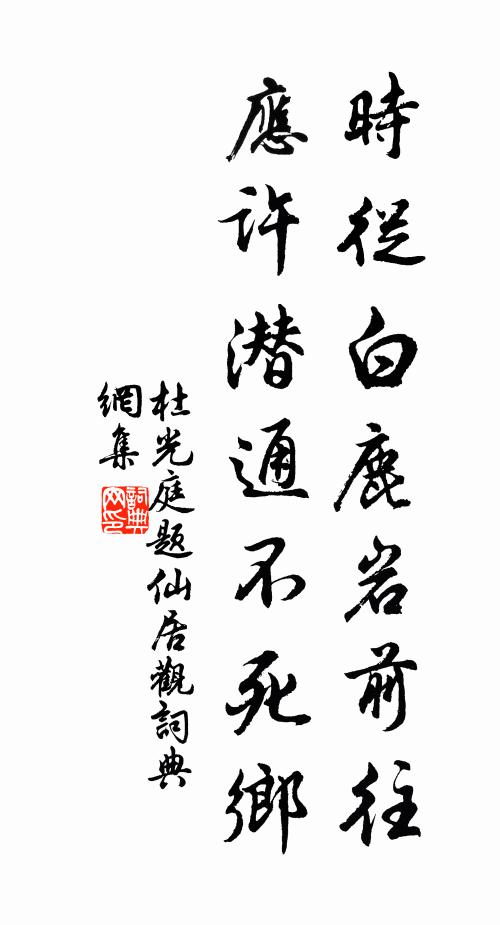 時從白鹿岩前往
應許潛通不死鄉
杜光庭題仙居觀詞典
網集
詞典
网印